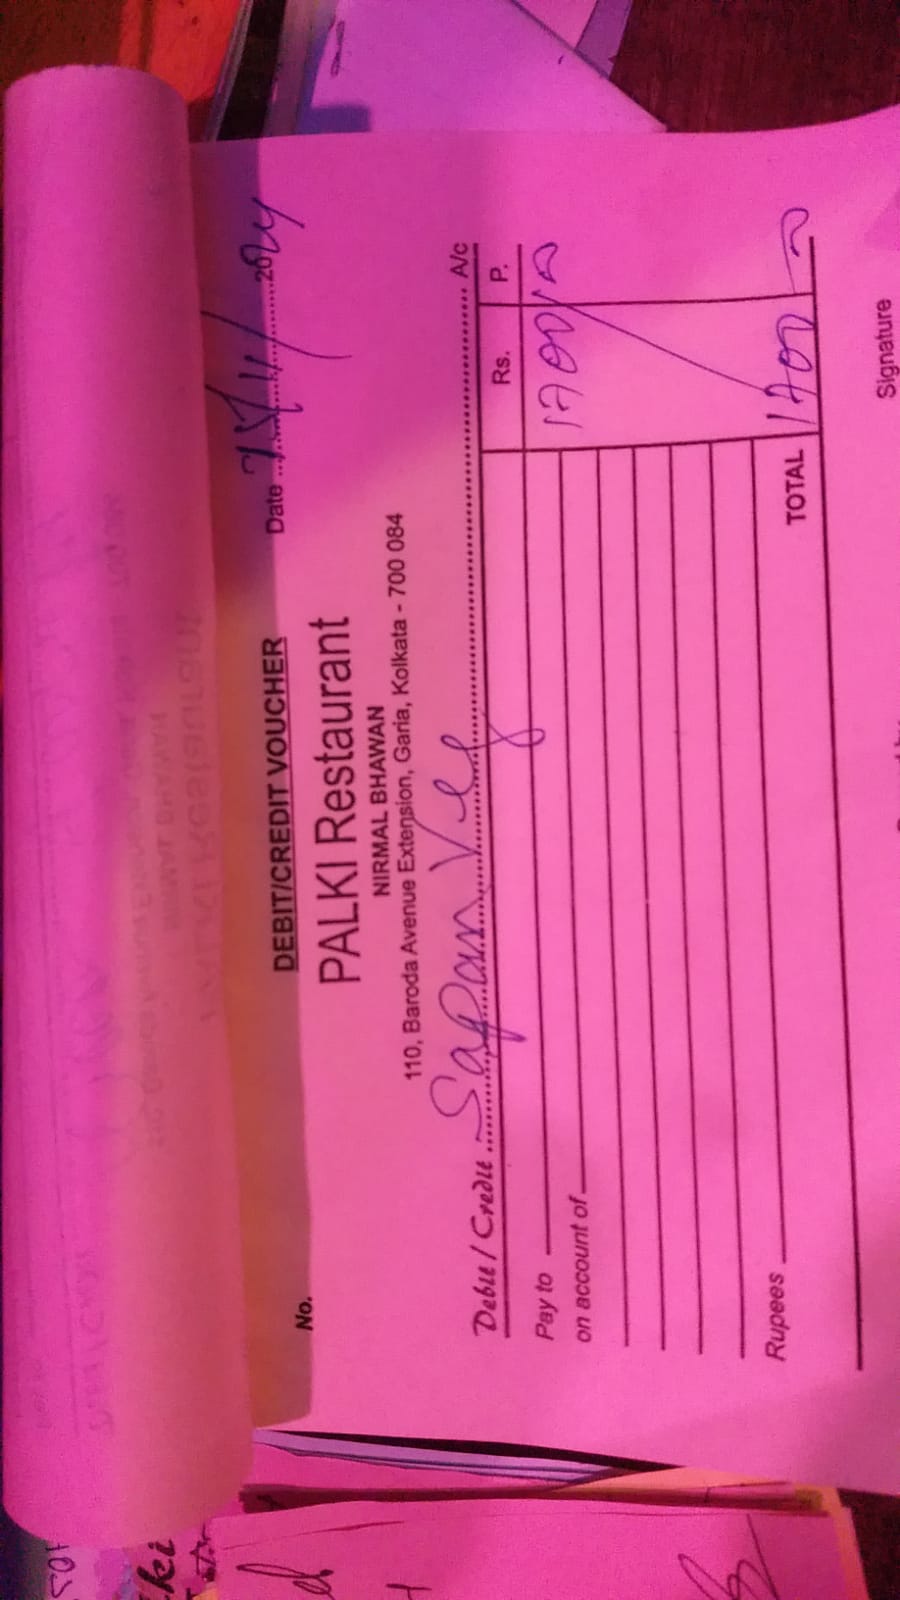 DEBIT/CREDIT VOUCHER
No.
Date 25/11/2024
PALKI Restaurant
NIRMAL BHAWAN
110, Baroda Avenue Extension, Garia, Kolkata - 700 084
Debit / Credit Sapan Veg A/c
Rs. P.
Pay to 1700/
on account of
Rupees
TOTAL 1700
Signature